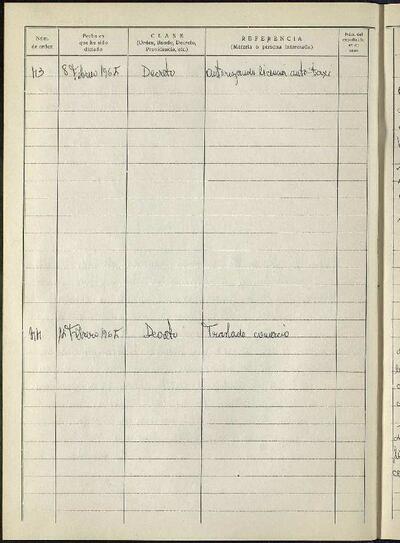 Núm. de orden
Fecha en que ha sido dictado
CLASE
(Orden, Bando, Decreto, Providencia, etc.)
REFERENCIA
(Materia o persona interesada)
Núm. del expediente en su caso
8 Febrero 1965 Decreto autorizando licencia auto-taxi
Febrero 1965 Decreto Traslado comercio